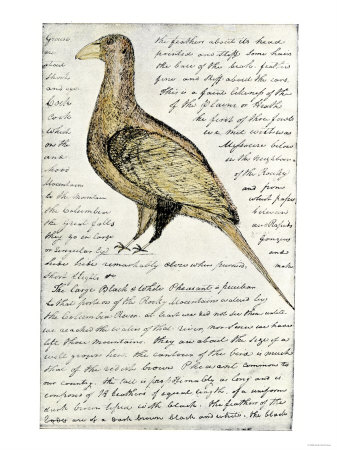 Grouse the feathers about its head
are pointed and stiff some hairs
about the base of the beak. feathers
short fine and stiff about the ears.
and eye. This is a faint likeness of the
Cock of the Plains or Heath
Cock the first of those fowls
which we met with was
on the Missouri below
and in the Neighbour-
of the Rocky
Mountains and from
to the Mountain which passes
the Columbia between
the Great falls and Rapids
they go in large Gangues
or Singular and
hide hide remarkably close when pursued, make
short flights &c
The large Black & White Pheasant is peculiar
to that portion of the Rocky Mountains watered by
the Columbia River. at least we did not see them untill
we reached the waters of that river, nor since we have
left those Mountains. they are about the size of a
well grown hen. the contour of the bird is much
that of the redish brown Pheasant common to
our country. the tail is proportionably as long and is
composed of 18 feathers of equal length, of a uniform
dark brown tiped with black. the feathers of the
body are of a dark brown black and white. the black